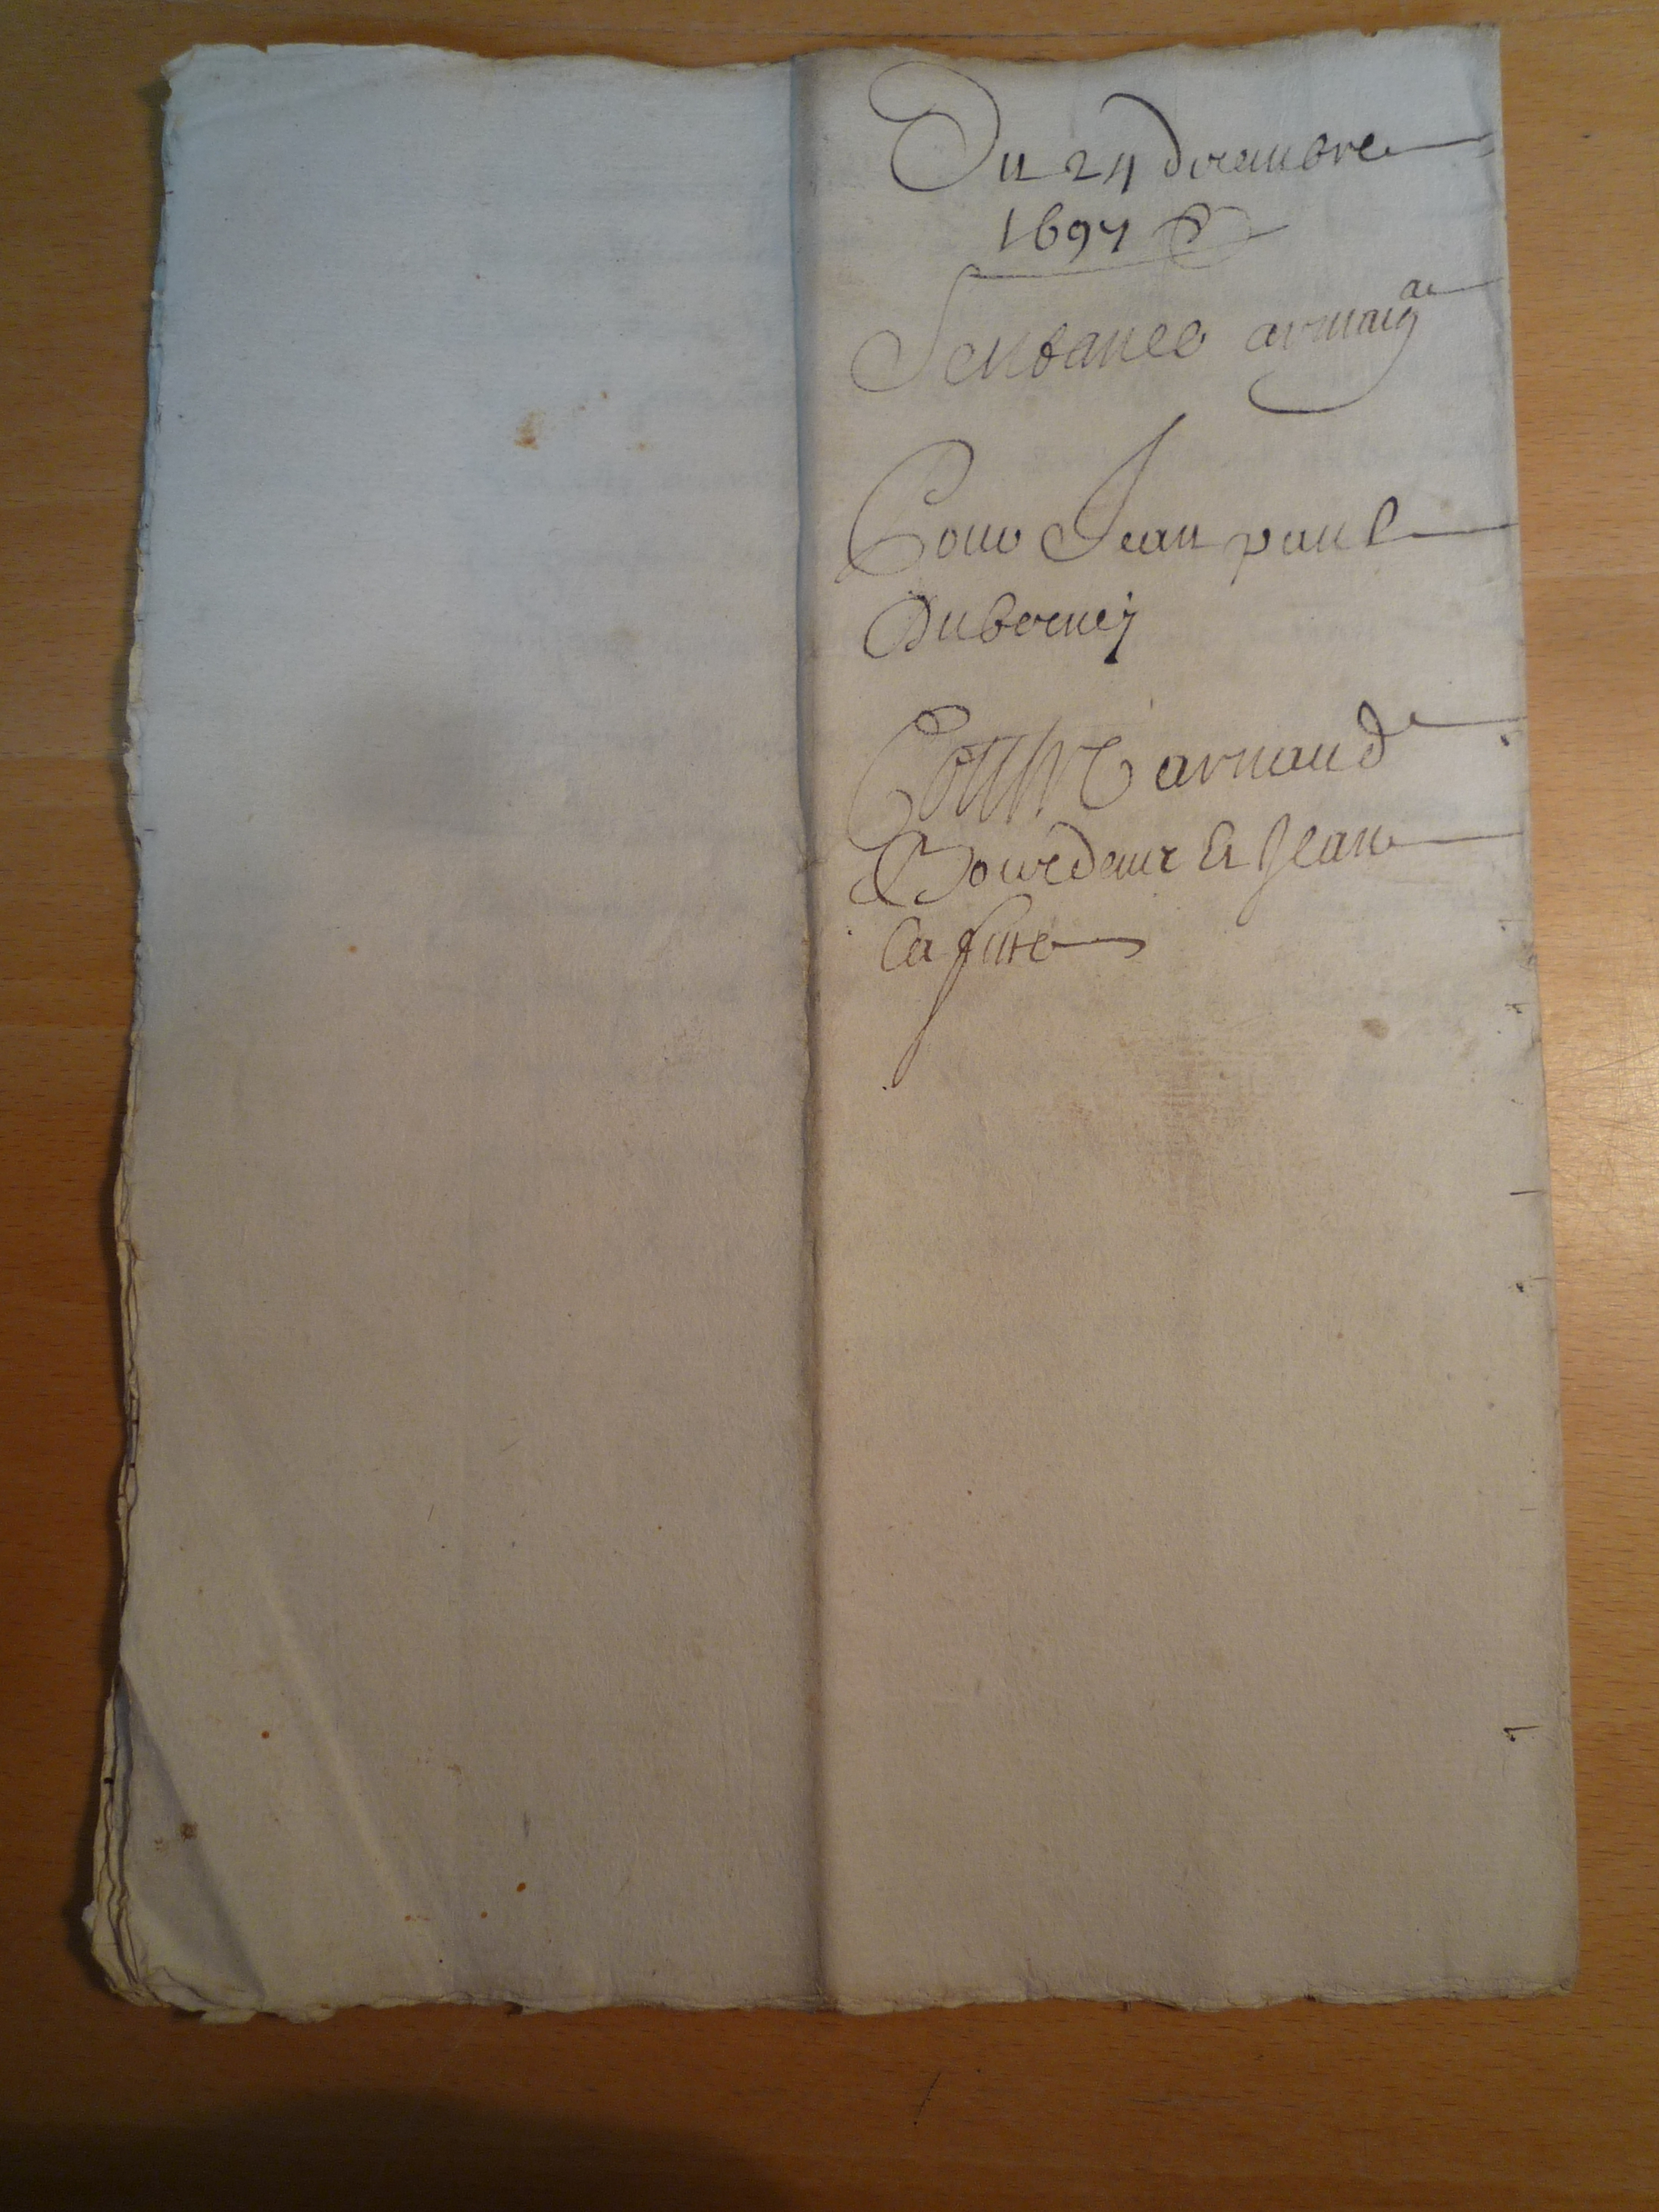 Du 24 decembre
1697
Sentance armaig^ac
Pour Jean paul
Dubernej
Contre arnaud
Bourdeur Et Jean
lafitte